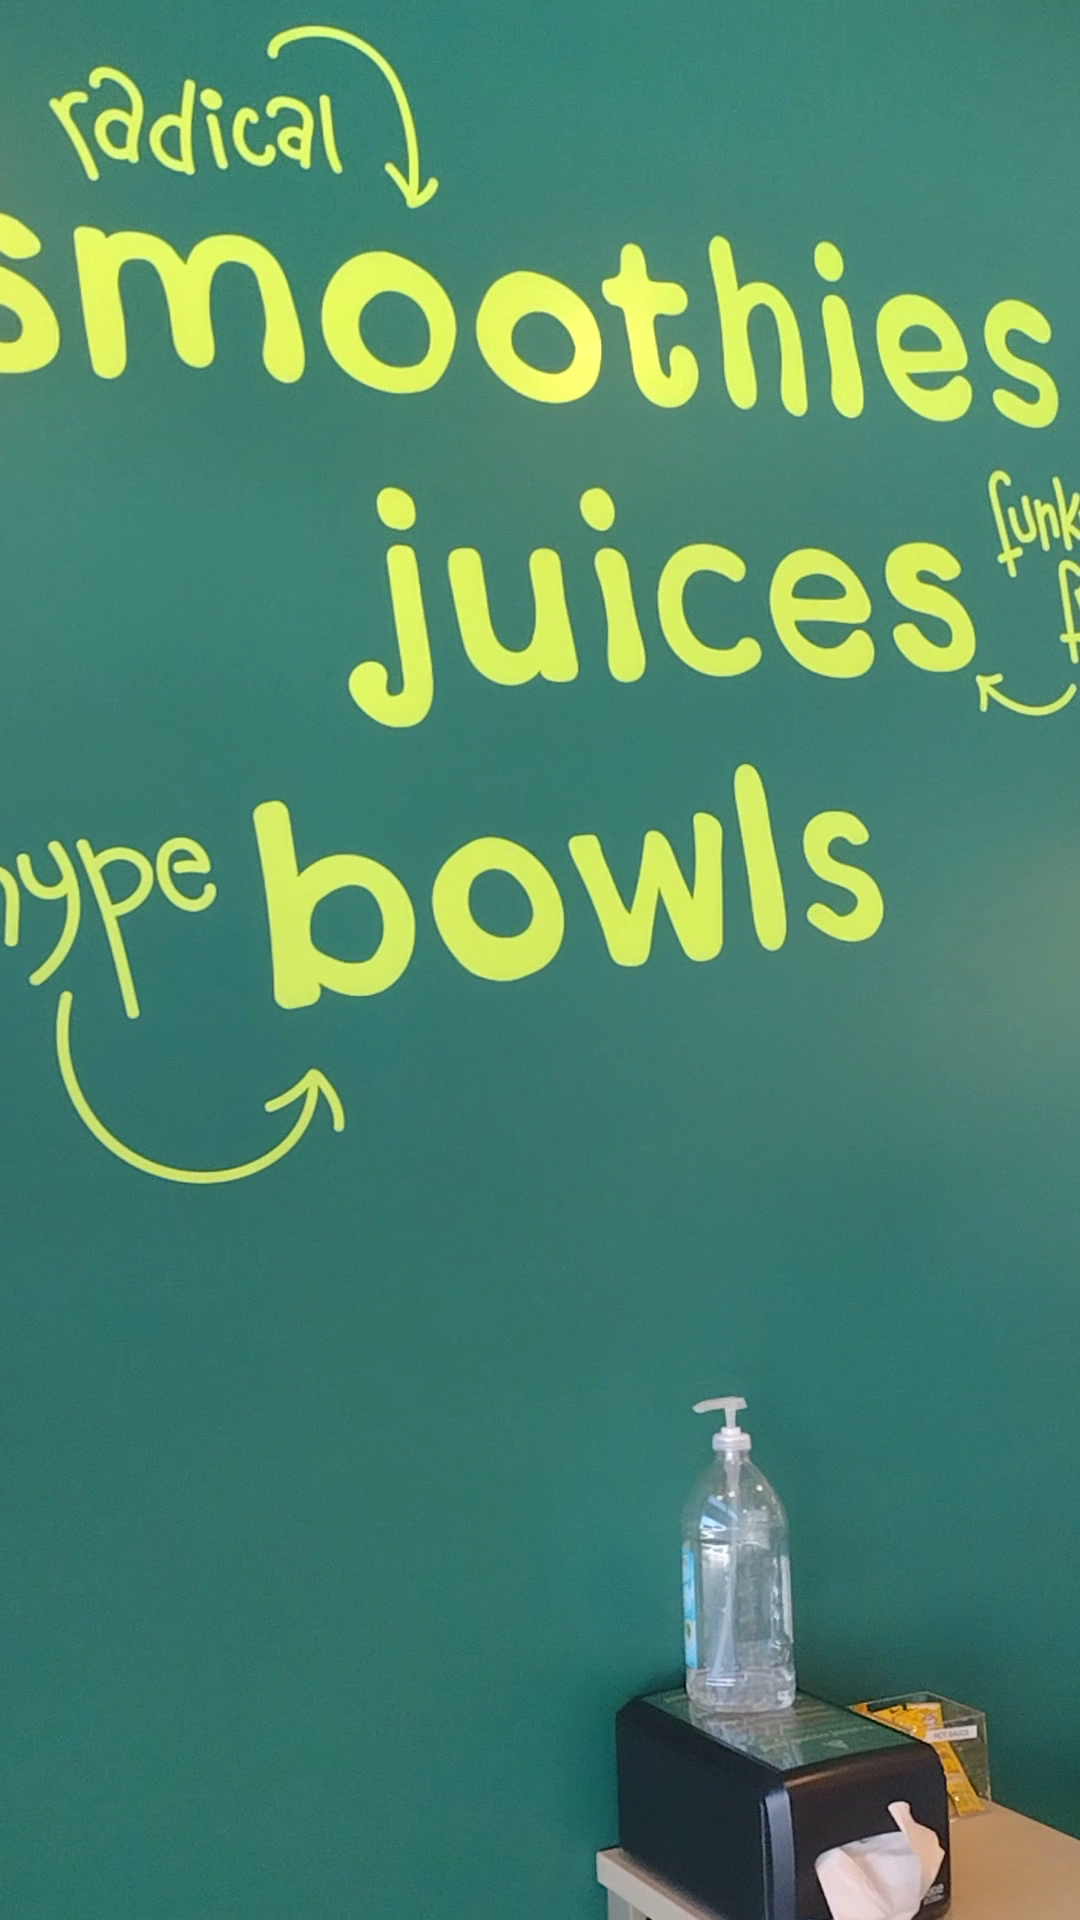 radical
smoothies
juices
hype
bowls
HOT SAUCE